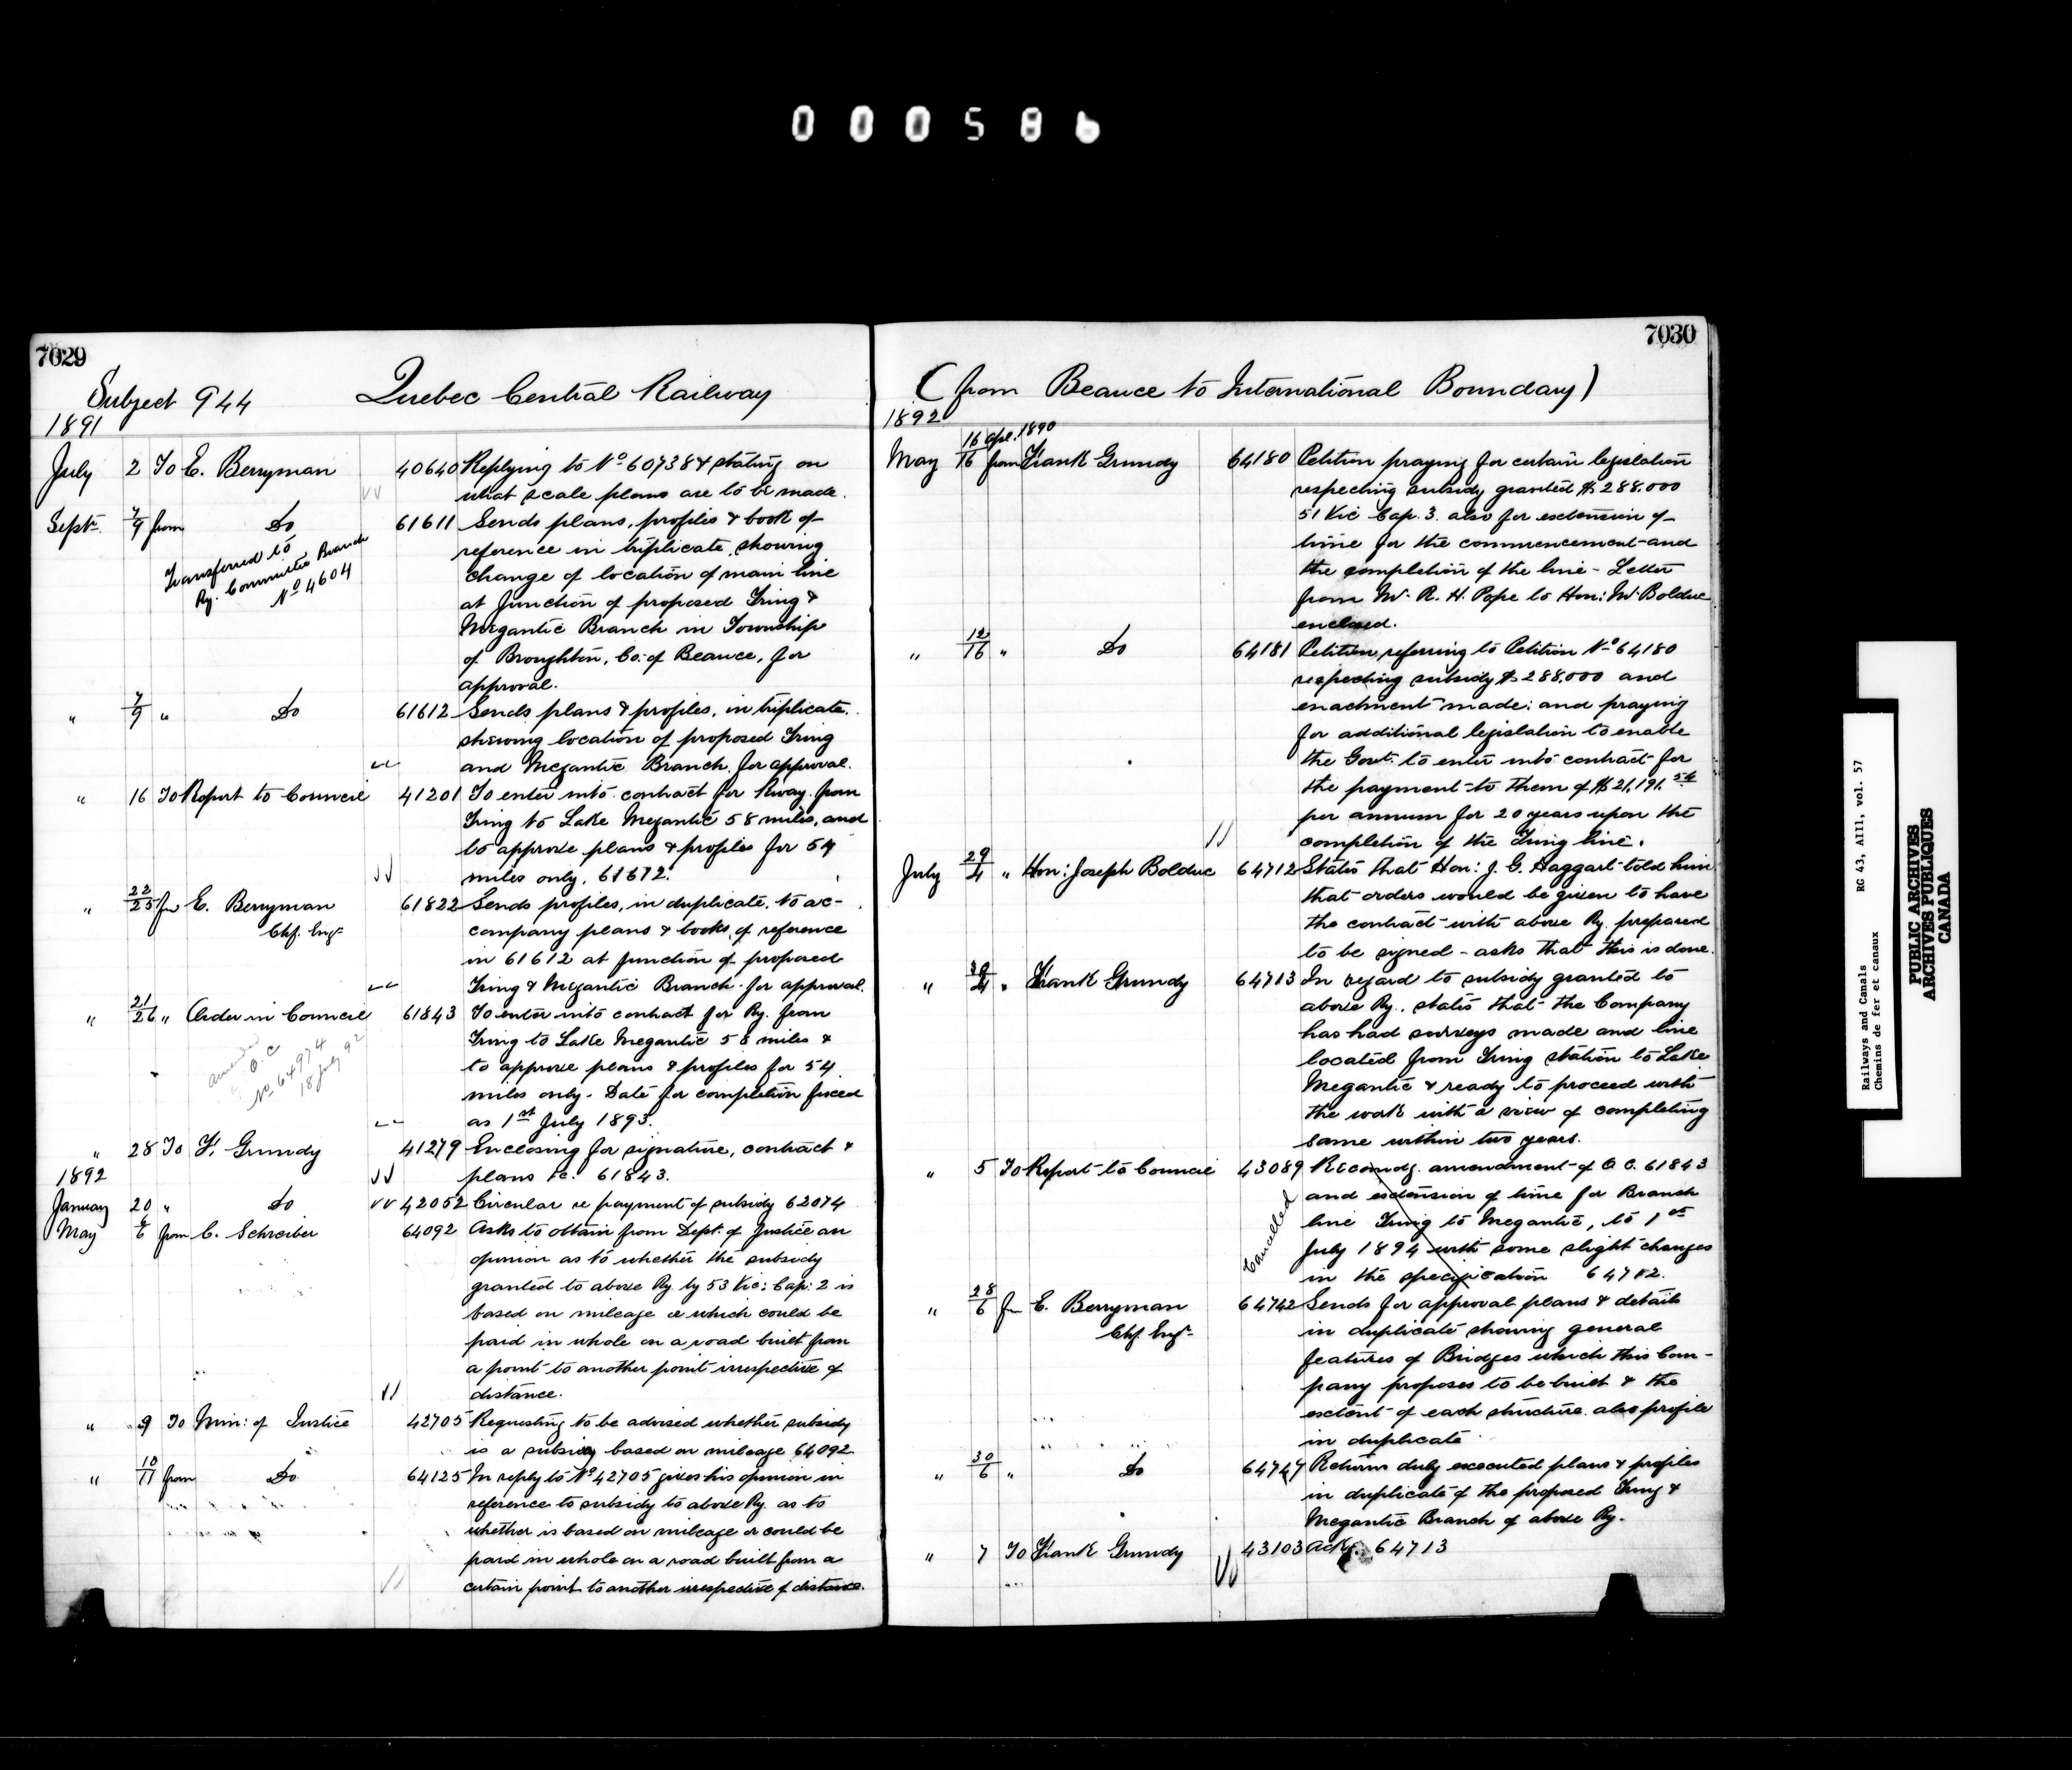 000586
7029
Subject 944 Quebec Central Railway
1891
July 2 To E. Berryman 40640 Replying to No 60738 & stating on
what scale plans are to be made.
Sept. 7/9 from Do 61611 Sends plans, profiles & book of
Transferred to
Ry. Committee Branch
No 4604
reference in triplicate, showing
change of location of main line
at Junction of proposed Tring &
Megantic Branch in Township
of Broughton, Co: of Beauce, for
approval.
" 7/9 " Do 61612 Sends plans & profiles, in triplicate.
shewing location of proposed Tring
and Megantic Branch. for approval.
" 16 To Report to Council 41201 To enter into contract for Rway. from
Tring to Lake Megantic 58 miles, and
to approve plans & profiles for 54
miles only. 61672.
" 22/25 fm E. Berryman 61822 Sends profiles, in duplicate, to ac-
Chf. Engr company plans & books, of reference
in 61612 at junction of proposed
Tring & Megantic Branch. for approval.
" 21/26 " Order in Council 61843 To enter into contract for Ry. from
amended
O.C
No 64974
18 July 92
Tring to Lake Megantic 58 miles &
to approve plans & profiles for 54
miles only. Date for completion fixed
as 1st July 1893.
" 28 To F. Grundy 41279 Enclosing for signature, contract &
plans &c. 61843.
1892
January 20 " Do 42052 Circular re payment of subsidy 62074
May 6 from C. Schreiber 64092 Asks to obtain from Dept. of Justice an
opinion as to whether the subsidy
granted to above Ry. by 53 Vic: Cap: 2 is
based on mileage or which could be
paid in whole on a road built from
a point to another point irrespective of
distance.
" 9 To Min: of Justice 42705 Requesting to be advised whether subsidy
is a subsidy based on mileage 64092.
" 10/11 from Do 64125 In reply to No 42705 gives his opinion in
reference to subsidy to above Ry. as to
whether is based on mileage or could be
paid in whole on a road built from a
certain point to another irrespective of distance.
7030
(from Beauce to International Boundary)
1892
16 Apl. 1890
May 16 from Frank Grundy 64180 Petition praying for certain legislation
respecting subsidy granted $288.000
51 Vic Cap. 3. also for extension of
time for the commencement and
the completion of the line - Letter
from Mr R. H. Pope to Hon: Mr Bolduc
enclosed.
" 12/16 " Do 64181 Petition referring to Petition No 64180
respecting subsidy $288.000 and
enactment made: and praying
for additional legislation to enable
the Govt. to enter into contract for
the payment to them of $21,191.54
per annum for 20 years upon the
completion of the Tring line.
July 29/4 " Hon: Joseph Bolduc 64712 States that Hon: J. G. Haggart told him
that orders would be given to have
the contract with above Ry. prepared
to be signed - asks that this is done.
" 4 " Frank Grundy 64713 In regard to subsidy granted to
above Ry. states that the Company
has had surveys made and line
located from Tring station to Lake
Megantic & ready to proceed with
the work with a view of completing
same within two years.
" 5 To Report to Council 43089 Recomdg. amendment of O.C. 61843
Cancelled
and extension of time for Branch
line Tring to Megantic, to 1st
July 1894 with some slight changes
in the specification 64712.
" 28/6 fm E. Berryman 64742 Sends for approval plans & details
Chf. Engr in duplicate showing general
features of Bridges which this Com-
pany proposes to be built & the
extent of each structure. also profile
in duplicate
" 30/6 " Do 64747 Returns duly executed plans & profiles
in duplicate of the proposed Tring &
Megantic Branch of above Ry.
" 7 To Frank Grundy 43103 Ackg. 64713
Railways and Canals RG 43, AIII, vol. 57
Chemins de fer et canaux
PUBLIC ARCHIVES
ARCHIVES PUBLIQUES
CANADA